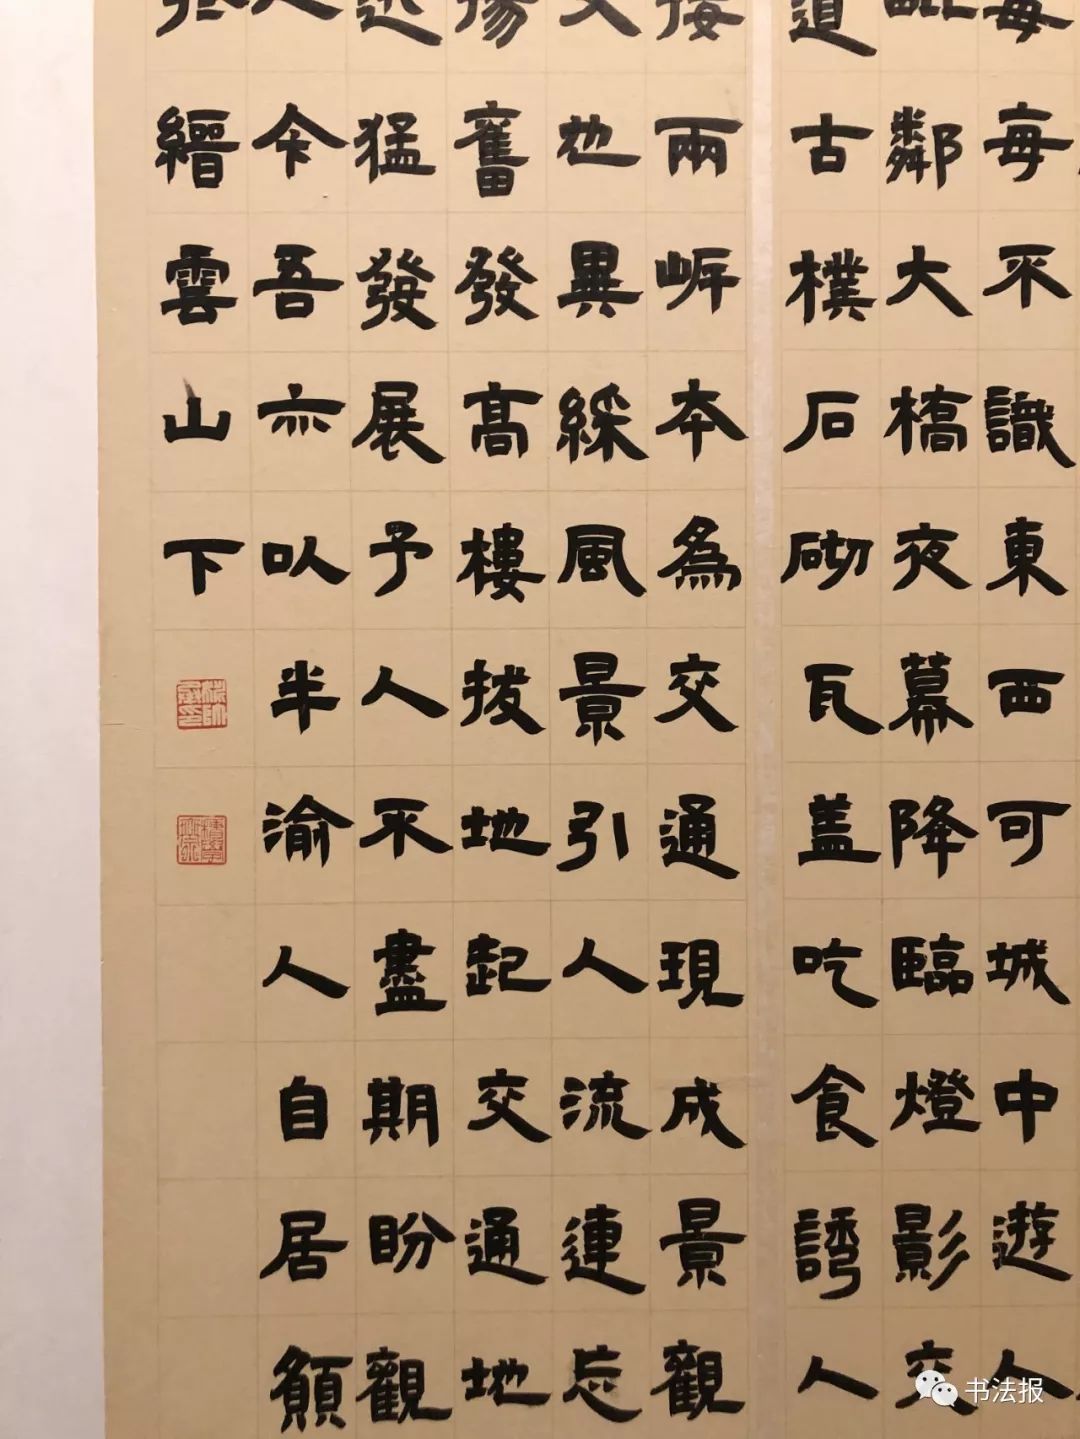 每每不識東西可城中遊人
毗鄰大橋夜幕降臨燈影交
道古樸石砌瓦蓋吃食誘人
接兩岸本為交通現成景觀
也異綵風景引人流連忘
揚奮發高樓拔地起交通地
迅猛發展予人不盡期盼觀
今吾亦以半渝人自居
縉雲山下
书法报